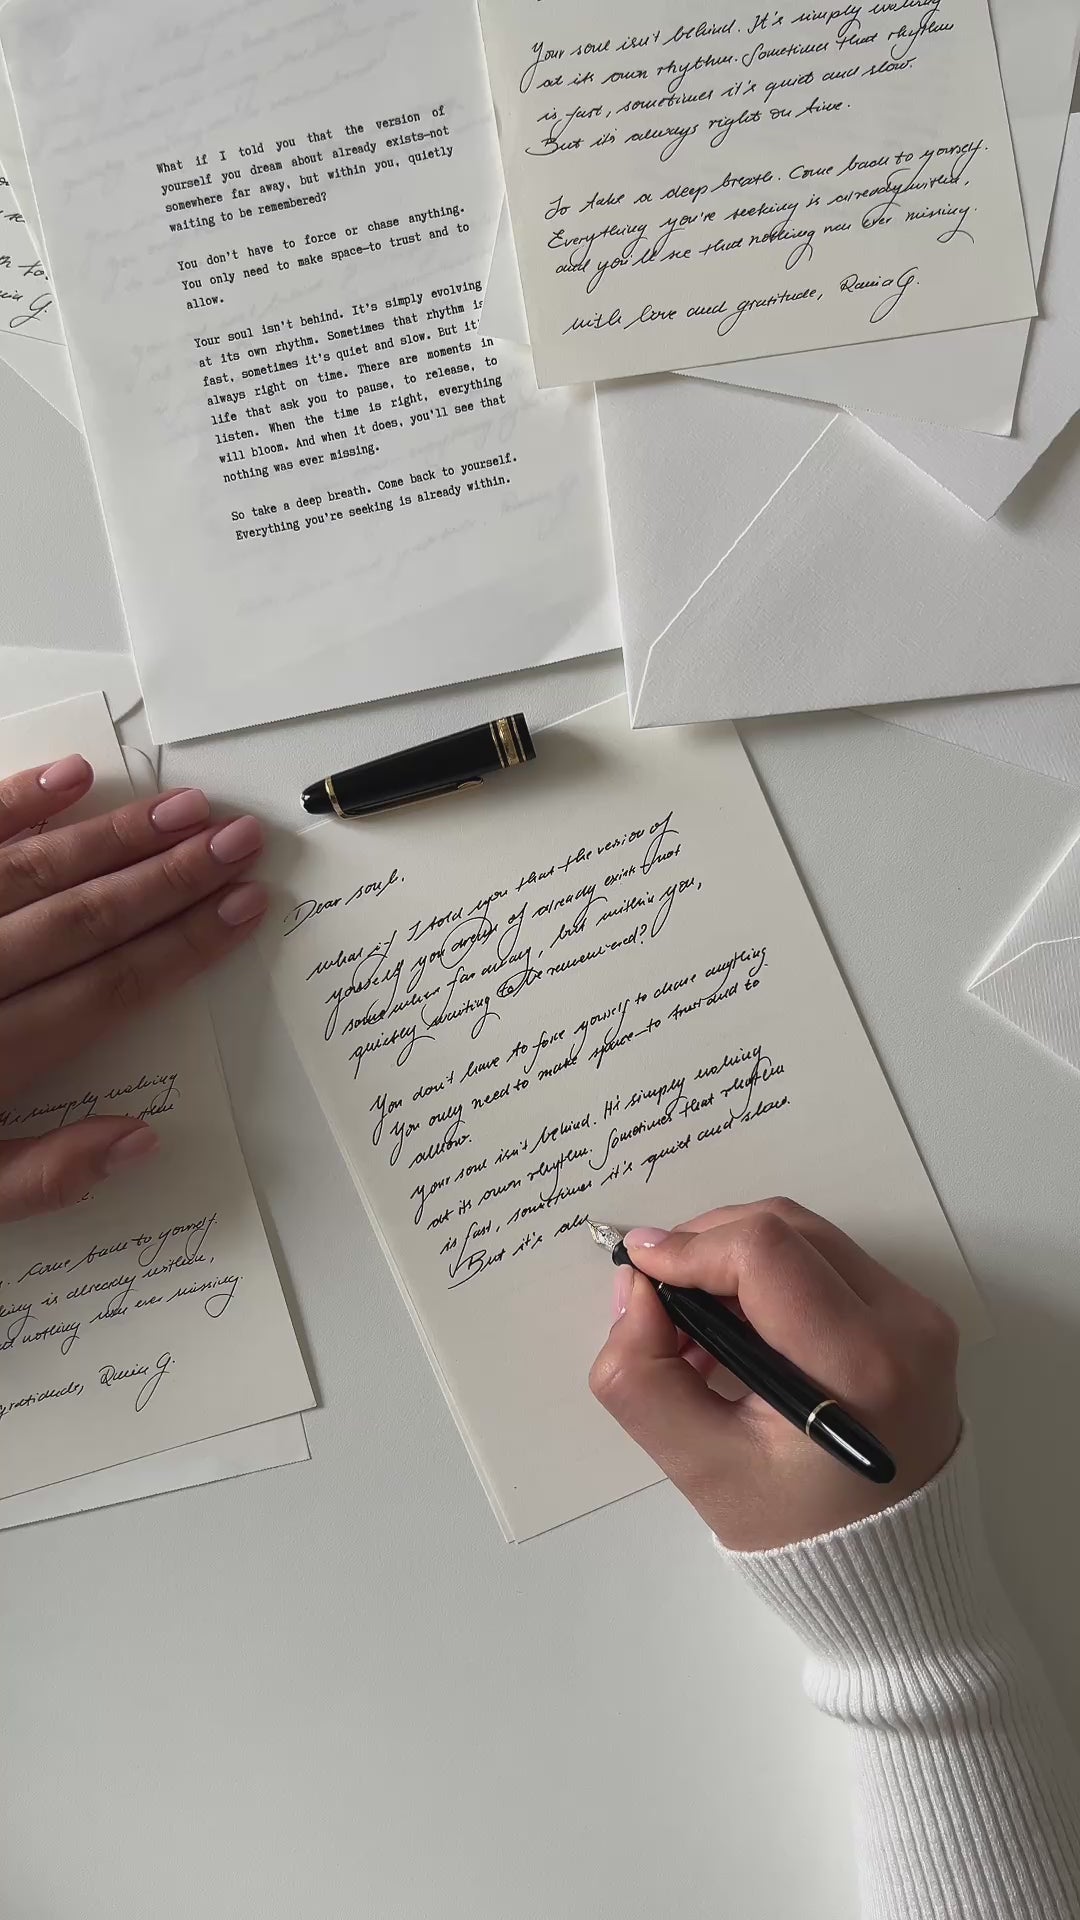 What if I told you that the version of
yourself you dream about already exists—not
somewhere far away, but within you, quietly
waiting to be remembered?
You don't have to force or chase anything.
You only need to make space—to trust and to
allow.
Your soul isn't behind. It's simply evolving
at its own rhythm. Sometimes that rhythm is
fast, sometimes it's quiet and slow. But it'
always right on time. There are moments in
life that ask you to pause, to release, to
listen. When the time is right, everything
will bloom. And when it does, you'll see that
nothing was ever missing.
So take a deep breath. Come back to yourself.
Everything you're seeking is already within.
Your soul isn't behind. It's simply walking
at its own rhythm. Sometimes that rhythm
is fast, sometimes it's quiet and slow.
But it's always right on time.
So take a deep breath. Come back to yourself.
Everything you're seeking is already within,
and you'll see that nothing was ever missing.
with love and gratitude, G.
Dear soul,
what if I told you that the version of
yourself you dream of already exists not
somewhere far away, but within you,
quietly waiting to be remembered?
You don't have to force yourself to chase anything
You only need to make space—to trust and to
allow.
your soul isn't behind. It's simply walking
at its own rhythm. Sometimes that rhythm
is fast, sometimes it's quiet and slow.
But it's alw
simply walking
Come back to yourself.
is already within,
nothing was ever missing.
gratitude, G.